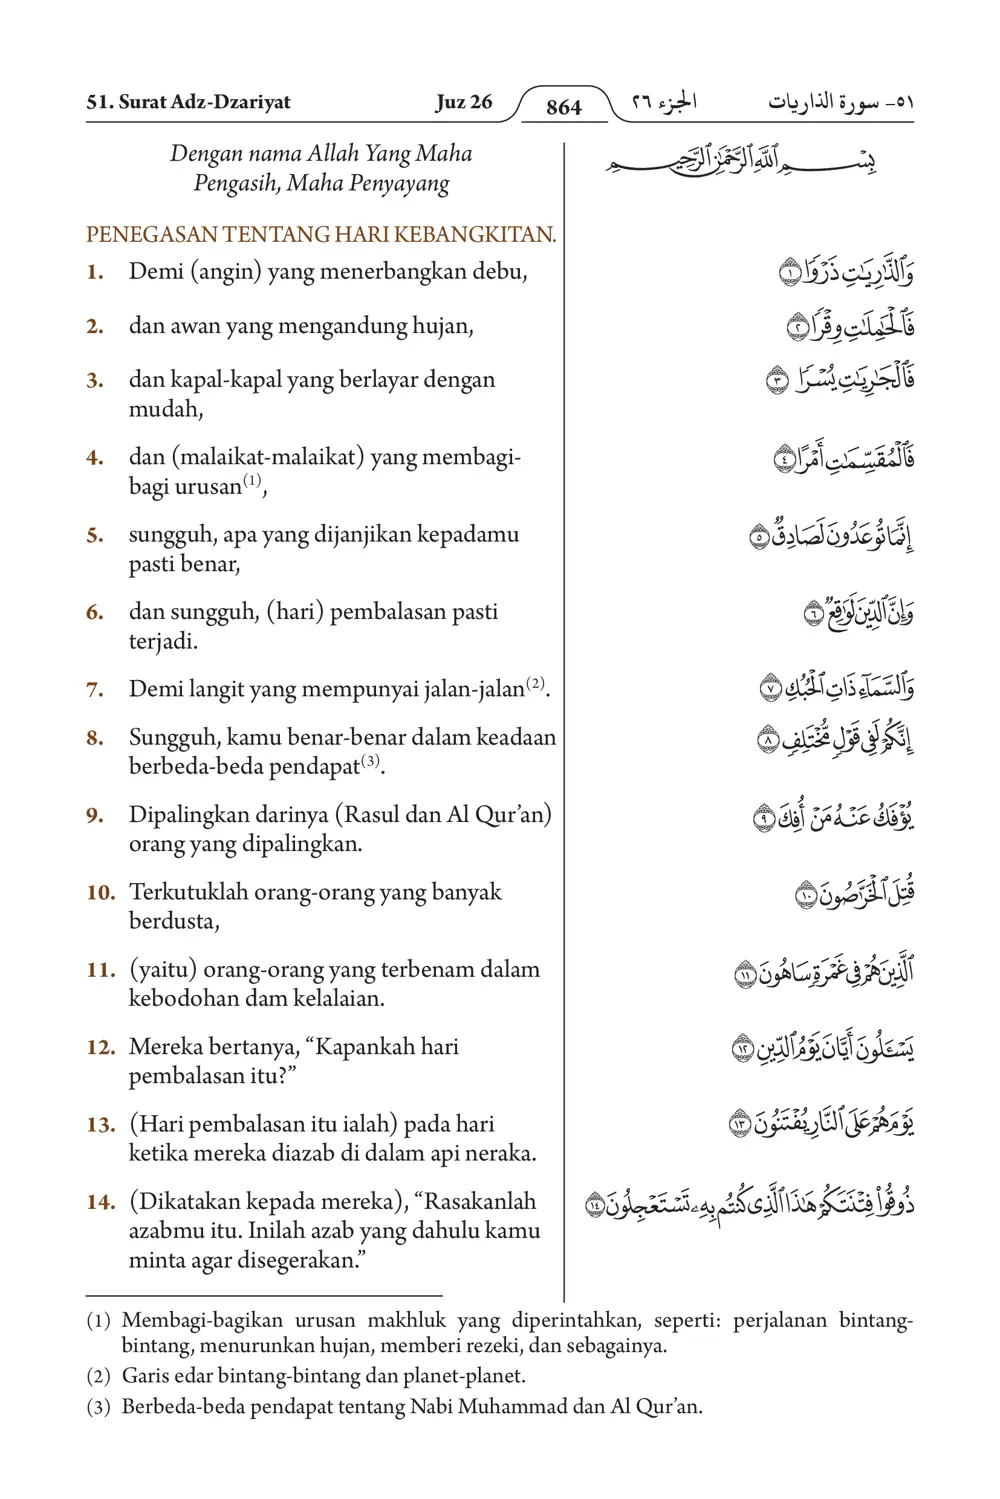 51. Surat Adz-Dzariyat Juz 26 864 الجزء ٢٦ ٥١- سورة الذاريات
Dengan nama Allah Yang Maha
Pengasih, Maha Penyayang
بِسْمِ ٱللَّهِ ٱلرَّحْمَٰنِ ٱلرَّحِيمِ
PENEGASAN TENTANG HARI KEBANGKITAN.
1. Demi (angin) yang menerbangkan debu,
وَٱلذَّٰرِيَٰتِ ذَرْوًا ١
2. dan awan yang mengandung hujan,
فَٱلْحَٰمِلَٰتِ وِقْرًا ٢
3. dan kapal-kapal yang berlayar dengan
mudah,
فَٱلْجَٰرِيَٰتِ يُسْرًا ٣
4. dan (malaikat-malaikat) yang membagi-
bagi urusan(1),
فَٱلْمُقَسِّمَٰتِ أَمْرًا ٤
5. sungguh, apa yang dijanjikan kepadamu
pasti benar,
إِنَّمَا تُوعَدُونَ لَصَادِقٌ ٥
6. dan sungguh, (hari) pembalasan pasti
terjadi.
وَإِنَّ ٱلدِّينَ لَوَٰقِعٌ ٦
7. Demi langit yang mempunyai jalan-jalan(2).
وَٱلسَّمَآءِ ذَاتِ ٱلْحُبُكِ ٧
8. Sungguh, kamu benar-benar dalam keadaan
berbeda-beda pendapat(3).
إِنَّكُمْ لَفِى قَوْلٍ مُّخْتَلِفٍ ٨
9. Dipalingkan darinya (Rasul dan Al Qur’an)
orang yang dipalingkan.
يُؤْفَكُ عَنْهُ مَنْ أُفِكَ ٩
10. Terkutuklah orang-orang yang banyak
berdusta,
قُتِلَ ٱلْخَرَّٰصُونَ ١٠
11. (yaitu) orang-orang yang terbenam dalam
kebodohan dam kelalaian.
ٱلَّذِينَ هُمْ فِى غَمْرَةٍ سَاهُونَ ١١
12. Mereka bertanya, “Kapankah hari
pembalasan itu?”
يَسْـَٔلُونَ أَيَّانَ يَوْمُ ٱلدِّينِ ١٢
13. (Hari pembalasan itu ialah) pada hari
ketika mereka diazab di dalam api neraka.
يَوْمَ هُمْ عَلَى ٱلنَّارِ يُفْتَنُونَ ١٣
14. (Dikatakan kepada mereka), “Rasakanlah
azabmu itu. Inilah azab yang dahulu kamu
minta agar disegerakan.”
ذُوقُوا۟ فِتْنَتَكُمْ هَٰذَا ٱلَّذِى كُنتُم بِهِۦ تَسْتَعْجِلُونَ ١٤
(1) Membagi-bagikan urusan makhluk yang diperintahkan, seperti: perjalanan bintang-
bintang, menurunkan hujan, memberi rezeki, dan sebagainya.
(2) Garis edar bintang-bintang dan planet-planet.
(3) Berbeda-beda pendapat tentang Nabi Muhammad dan Al Qur’an.